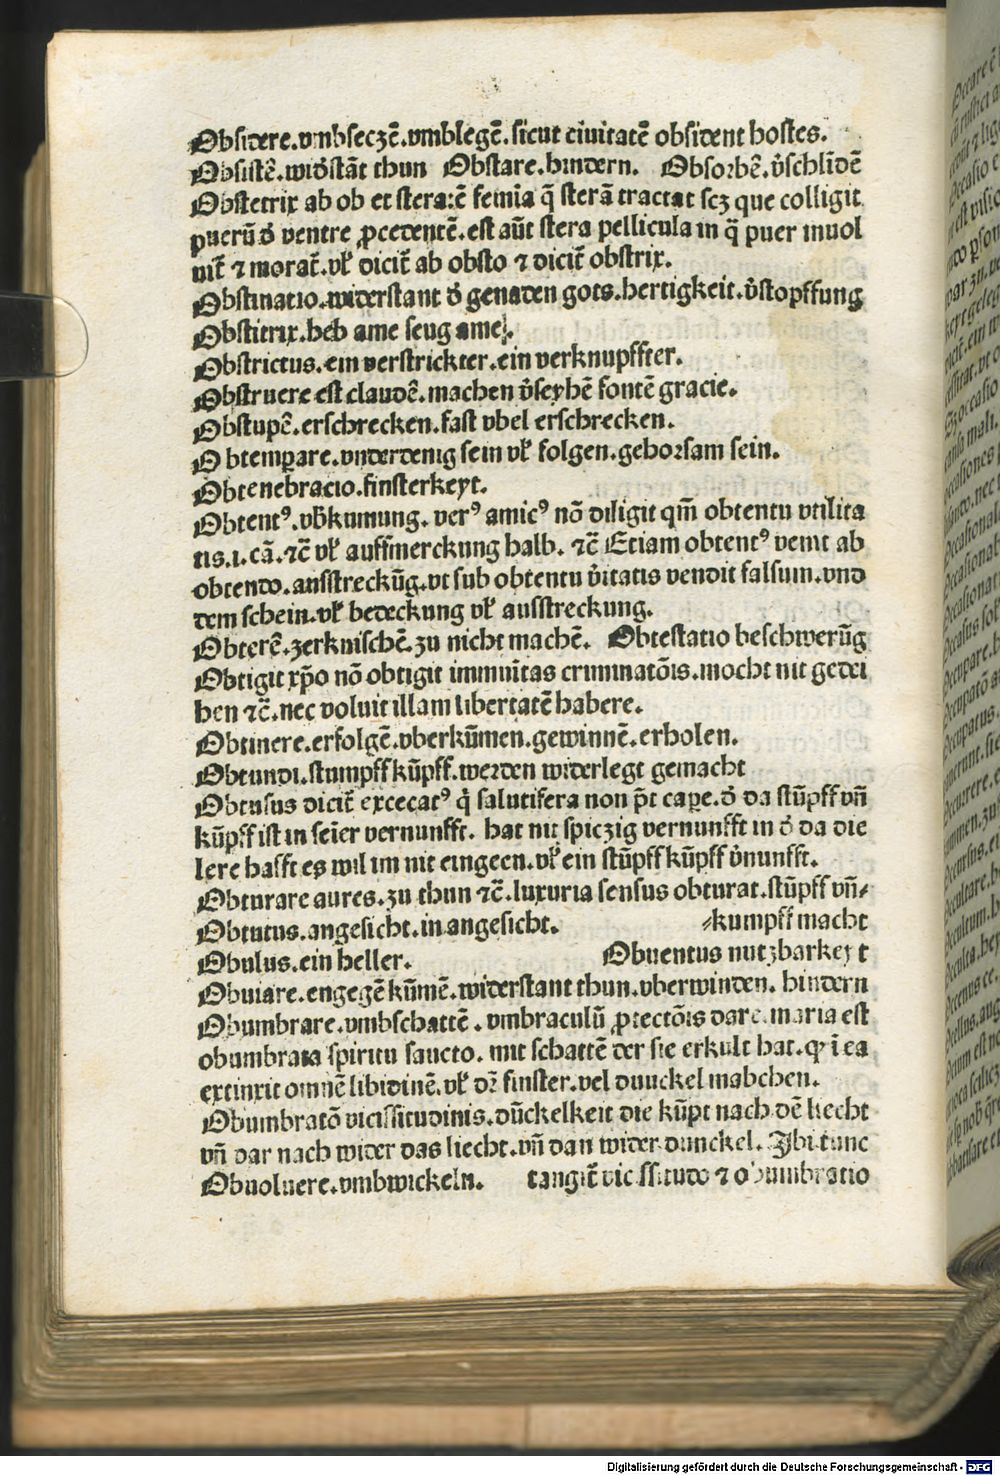 Obsidere.vmbseczē.vmblegē.sicut ciuitatē obsident hostes.
Obsistē.wid̕stāt thun Obstare.hindern. Obsorbē.v̕schlīdē
Obstetrix ab ob et stera:ē femīa q̄ sterā tractat scz que colligit
puerū d̕ ventre ꝓcedentē.est aūt stera pellicula in q̄ puer inuol
uit̄ ⁊ morat̄.vl̕ dicit̄ ab obsto ⁊ dicit̄ obstrix.
Obstinatio.widerstant d̕ genaden gots.hertigkeit.v̕stopffung
Obstitrix.heb ame seug ame.
Obstrictus.ein verstrickter.ein verknupffter.
Obstruere est claudē.machen v̕seyhē fontē gracie.
Obstupē.erschrecken.fast vbel erschrecken.
Obtemꝑare.vnderdenig sein vl̕ folgen.gehorsam sein.
Obtenebracio.finsterkeyt.
Obtentꝰ.vb̕kumung. verꝰ amicꝰ nō diligit qm̄ obtentu vtilita
tis.i.cā.⁊c̄ vl̕ auffmerckung halb. ⁊c̄ Etiam obtentꝰ venit ab
obtendo.ausstreckūg.vt sub obtentu v̕itatis vendit falsum.vnd
dem schein.vl̕ bedeckung vl̕ ausstreckung.
Obterē.zerknischē.zu nicht machē. Obtestatio beschwerūg
Obtigit xp̄o nō obtigit immūitas criminatōis.mocht nit gedei
hen ⁊c̄.nec voluit illam libertatē habere.
Obtinere.erfolgē.vberkūmen.gewinnē.erholen.
Obtundi.stumpff kūpff.werden widerlegt gemacht
Obtusus dicit̄ excecatꝰ q̇ salutifera non p̄t caꝑe.d̕ da stūpff vn̄
kūpff ist in seīer vernunfft. hat nit spiczig vernunfft in d̕ da die
lere hafft es wil im nit eingeen.vl̕ ein stūpff kūpff v̕nunfft.
Obturare aures.zu thun ⁊c̄.luxuria sensus obturat.stūpff vn̄⸗
Obtutus.angesicht.in angesicht. ⸗kumpff macht
Obulus.ein heller. Obuentus nutzbarkeyt
Obuiare.engegē kūmē.widerstant thun.vberwinden. hindern
Obumbrare.vmbschattē. vmbraculū ꝓtectōis dare. maria est
obumbrata spiritu sancto. mit schattē der sie erkult hat.qꝛ ī ea
extinxit omnē libidinē.vl̕ dꝛ̄ finster.vel dunckel mabchen.
Obumbratō vicissitudinis.dūckelkeit die kūpt nach dē liecht
vn̄ dar nach wider das liecht.vn̄ dan wider dunckel. Ibi tunc
Obuoluere.vmbwickeln. tangit̄ vicissitudo ⁊ obumbratio
Digitalisierung gefördert durch die Deutsche Forschungsgemeinschaft - DFG